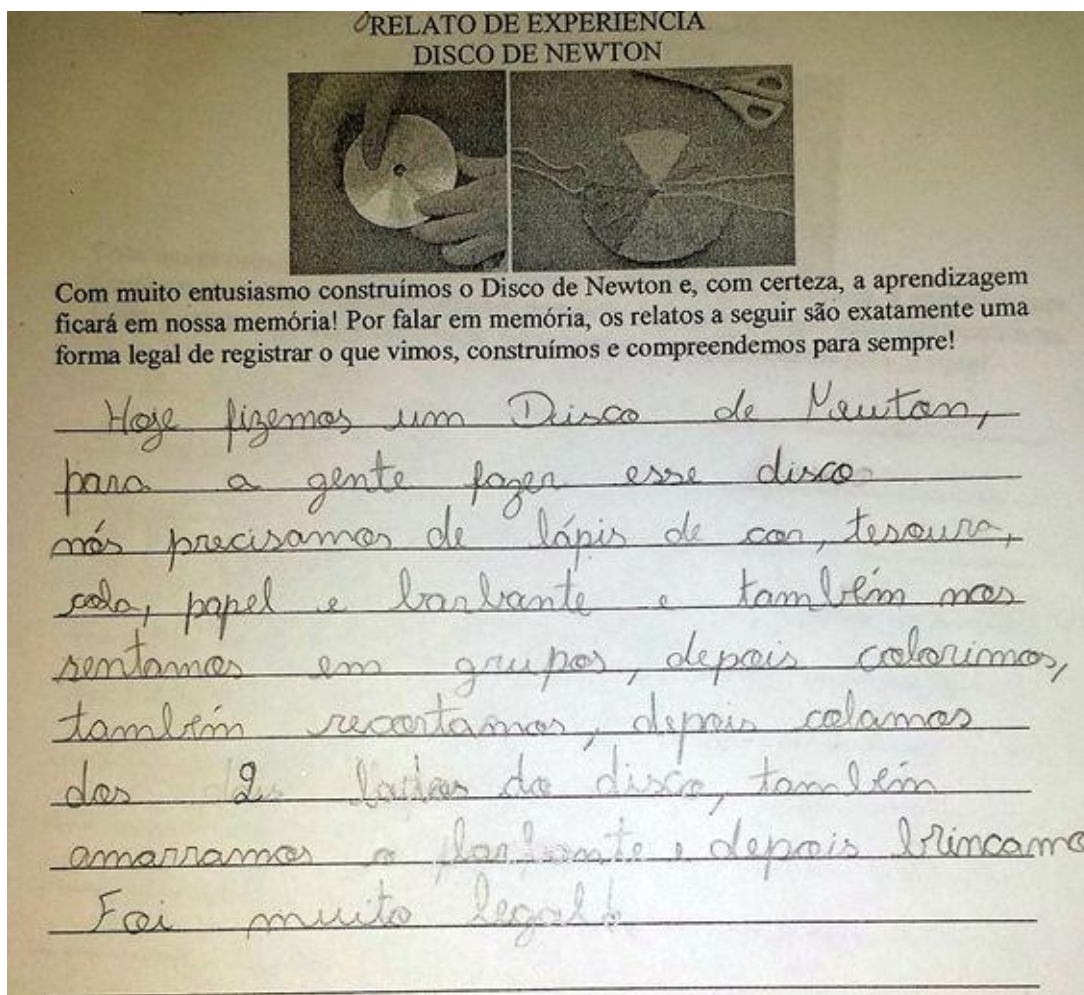 RELATO DE EXPERIÊNCIA
DISCO DE NEWTON
Com muito entusiasmo construímos o Disco de Newton e, com certeza, a aprendizagem
ficará em nossa memória! Por falar em memória, os relatos a seguir são exatamente uma
forma legal de registrar o que vimos, construímos e compreendemos para sempre!
Hoje fizemos um Disco de Neuton,
para a gente fazer esse disco
nós precisamos de lápis de cor, tesoura,
cola, papel e barbante e também nos
sentamos em grupos, depois colorimos,
também recortamos, depois colamos
dos 2 lados do disco, também
amarramos o barbante e depois brincamo
Foi muito legal!